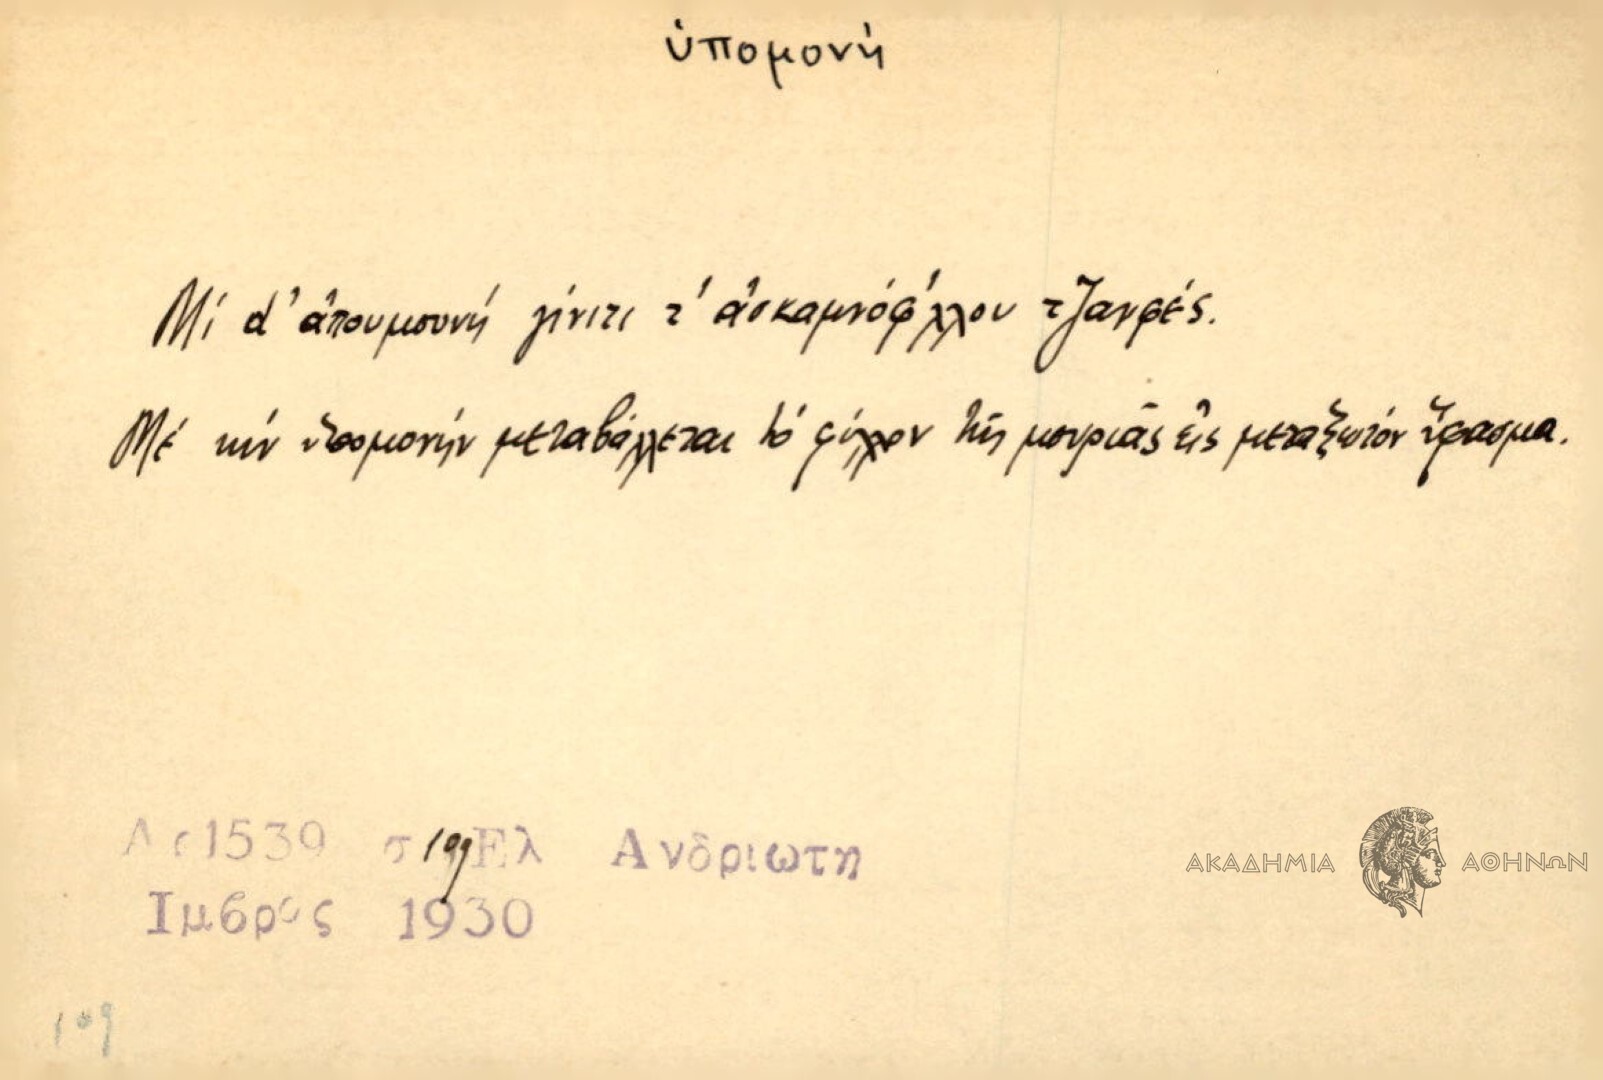 ὑπομονή
Μὶ d' ἀπουμουνή γίνιτι τ' ἀσκαμνόφ'λλου τζανφές.
Μέ τήν ὑπομονήν μεταβάλλεται τό φύλλον τῆς μουριᾶς εἰς μεταξωτόν ὕφασμα.
Αρ 1539 σ 109 Ελ Ανδριωτη
Ιμβρος 1930
ΑΚΑΔΗΜΙΑ ΑΘΗΝΩΝ
109